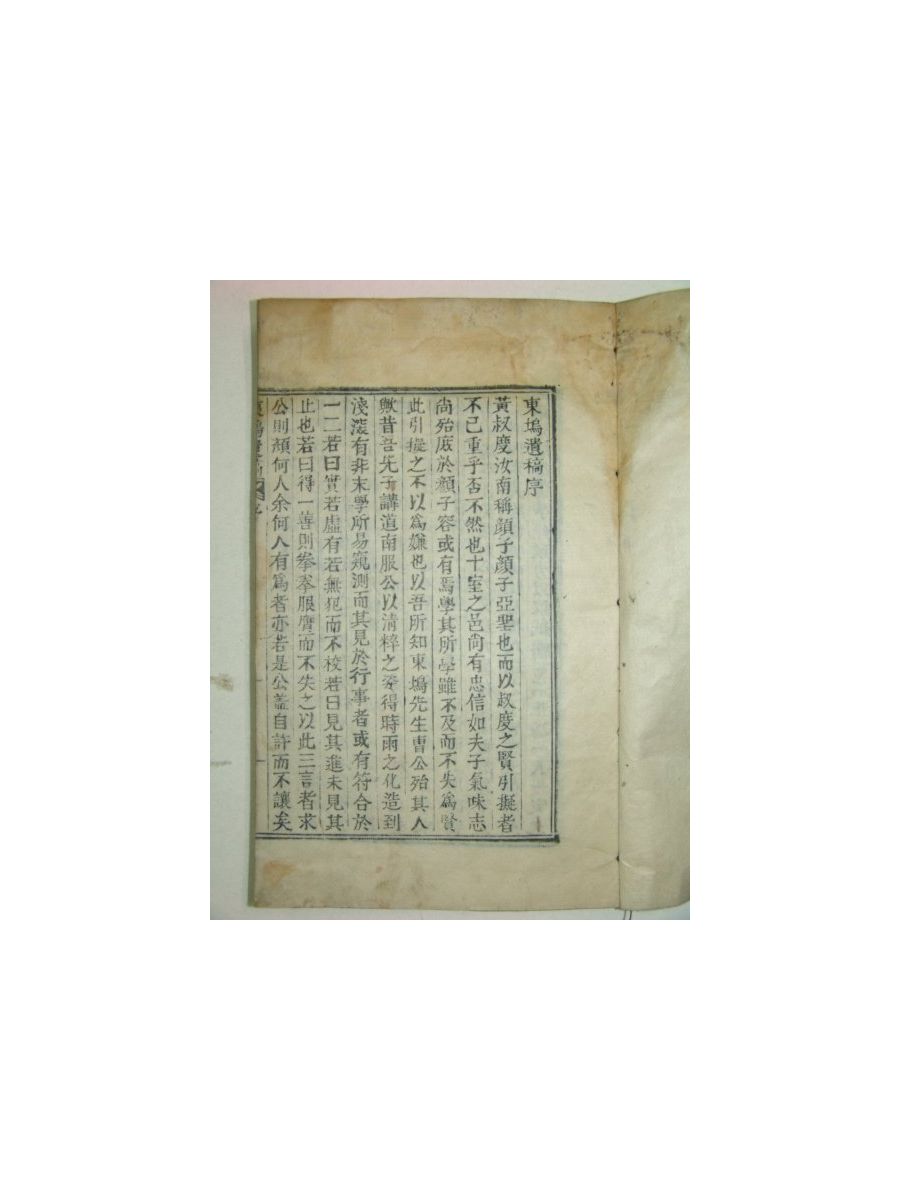 東塢遺稿序
黃叔度汝南稱顔子顔子亞聖也而以叔度之賢引擬者
不已重乎否不然也十室之邑尙有忠信如夫子氣味志
尙殆庶於顔子容或有焉學其所學雖不及而不失爲賢
此引擬之不以爲嫌也以吾所知東塢先生曺公殆其人
歟昔吾先子講道南服公以淸粹之姿得時雨之化造到
淺深有非末學所易窺測而其見於行事者或有符合於
一二若曰實若虛有若無犯而不校若曰見其進未見其
止也若曰得一善則拳拳服膺而不失之以此三言者求
公則顔何人余何人有爲者亦若是公盖自許而不讓矣